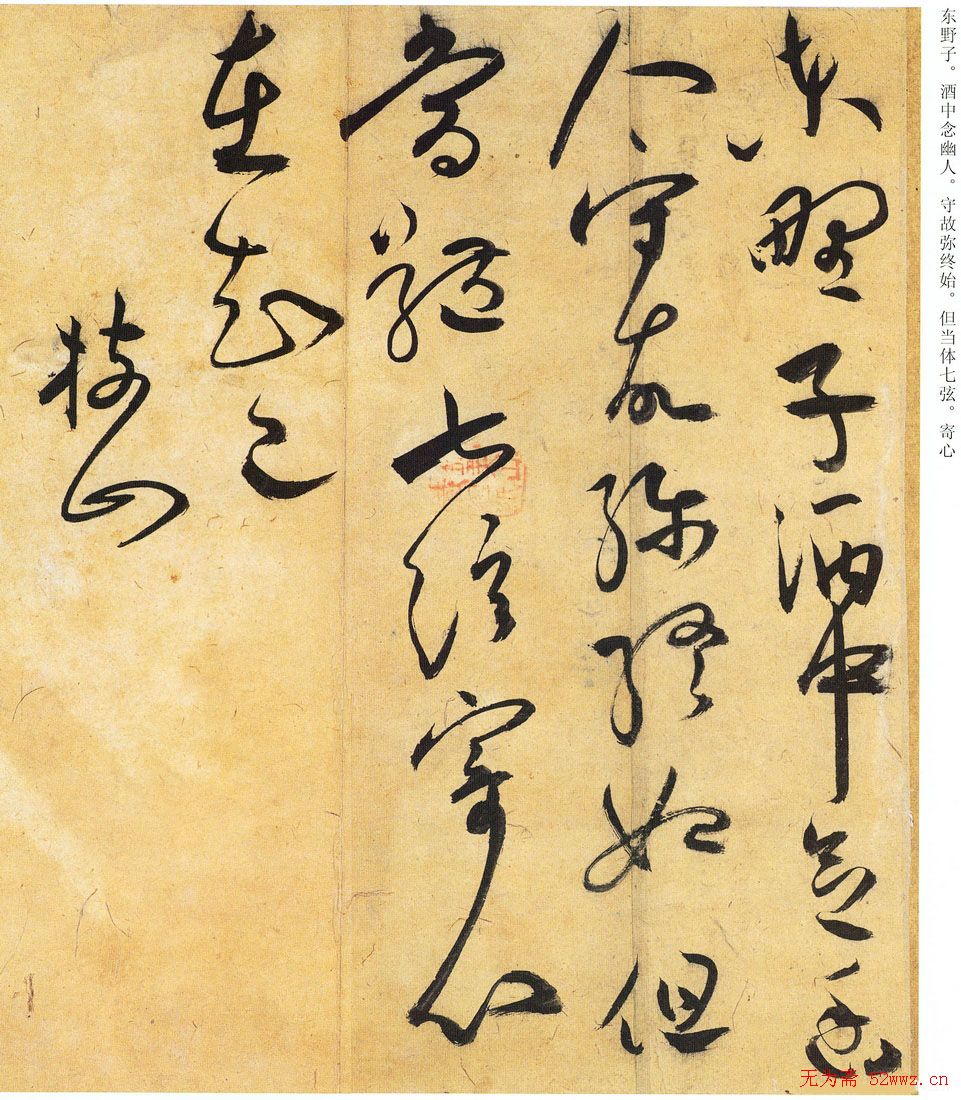 东野子。酒中念幽人。守故弥终始。但当体七弦。寄心
東野子酒中念幽
人守故弥終始但
當體七絃寄心
在知己
枝山
无为斋 52wwz.cn